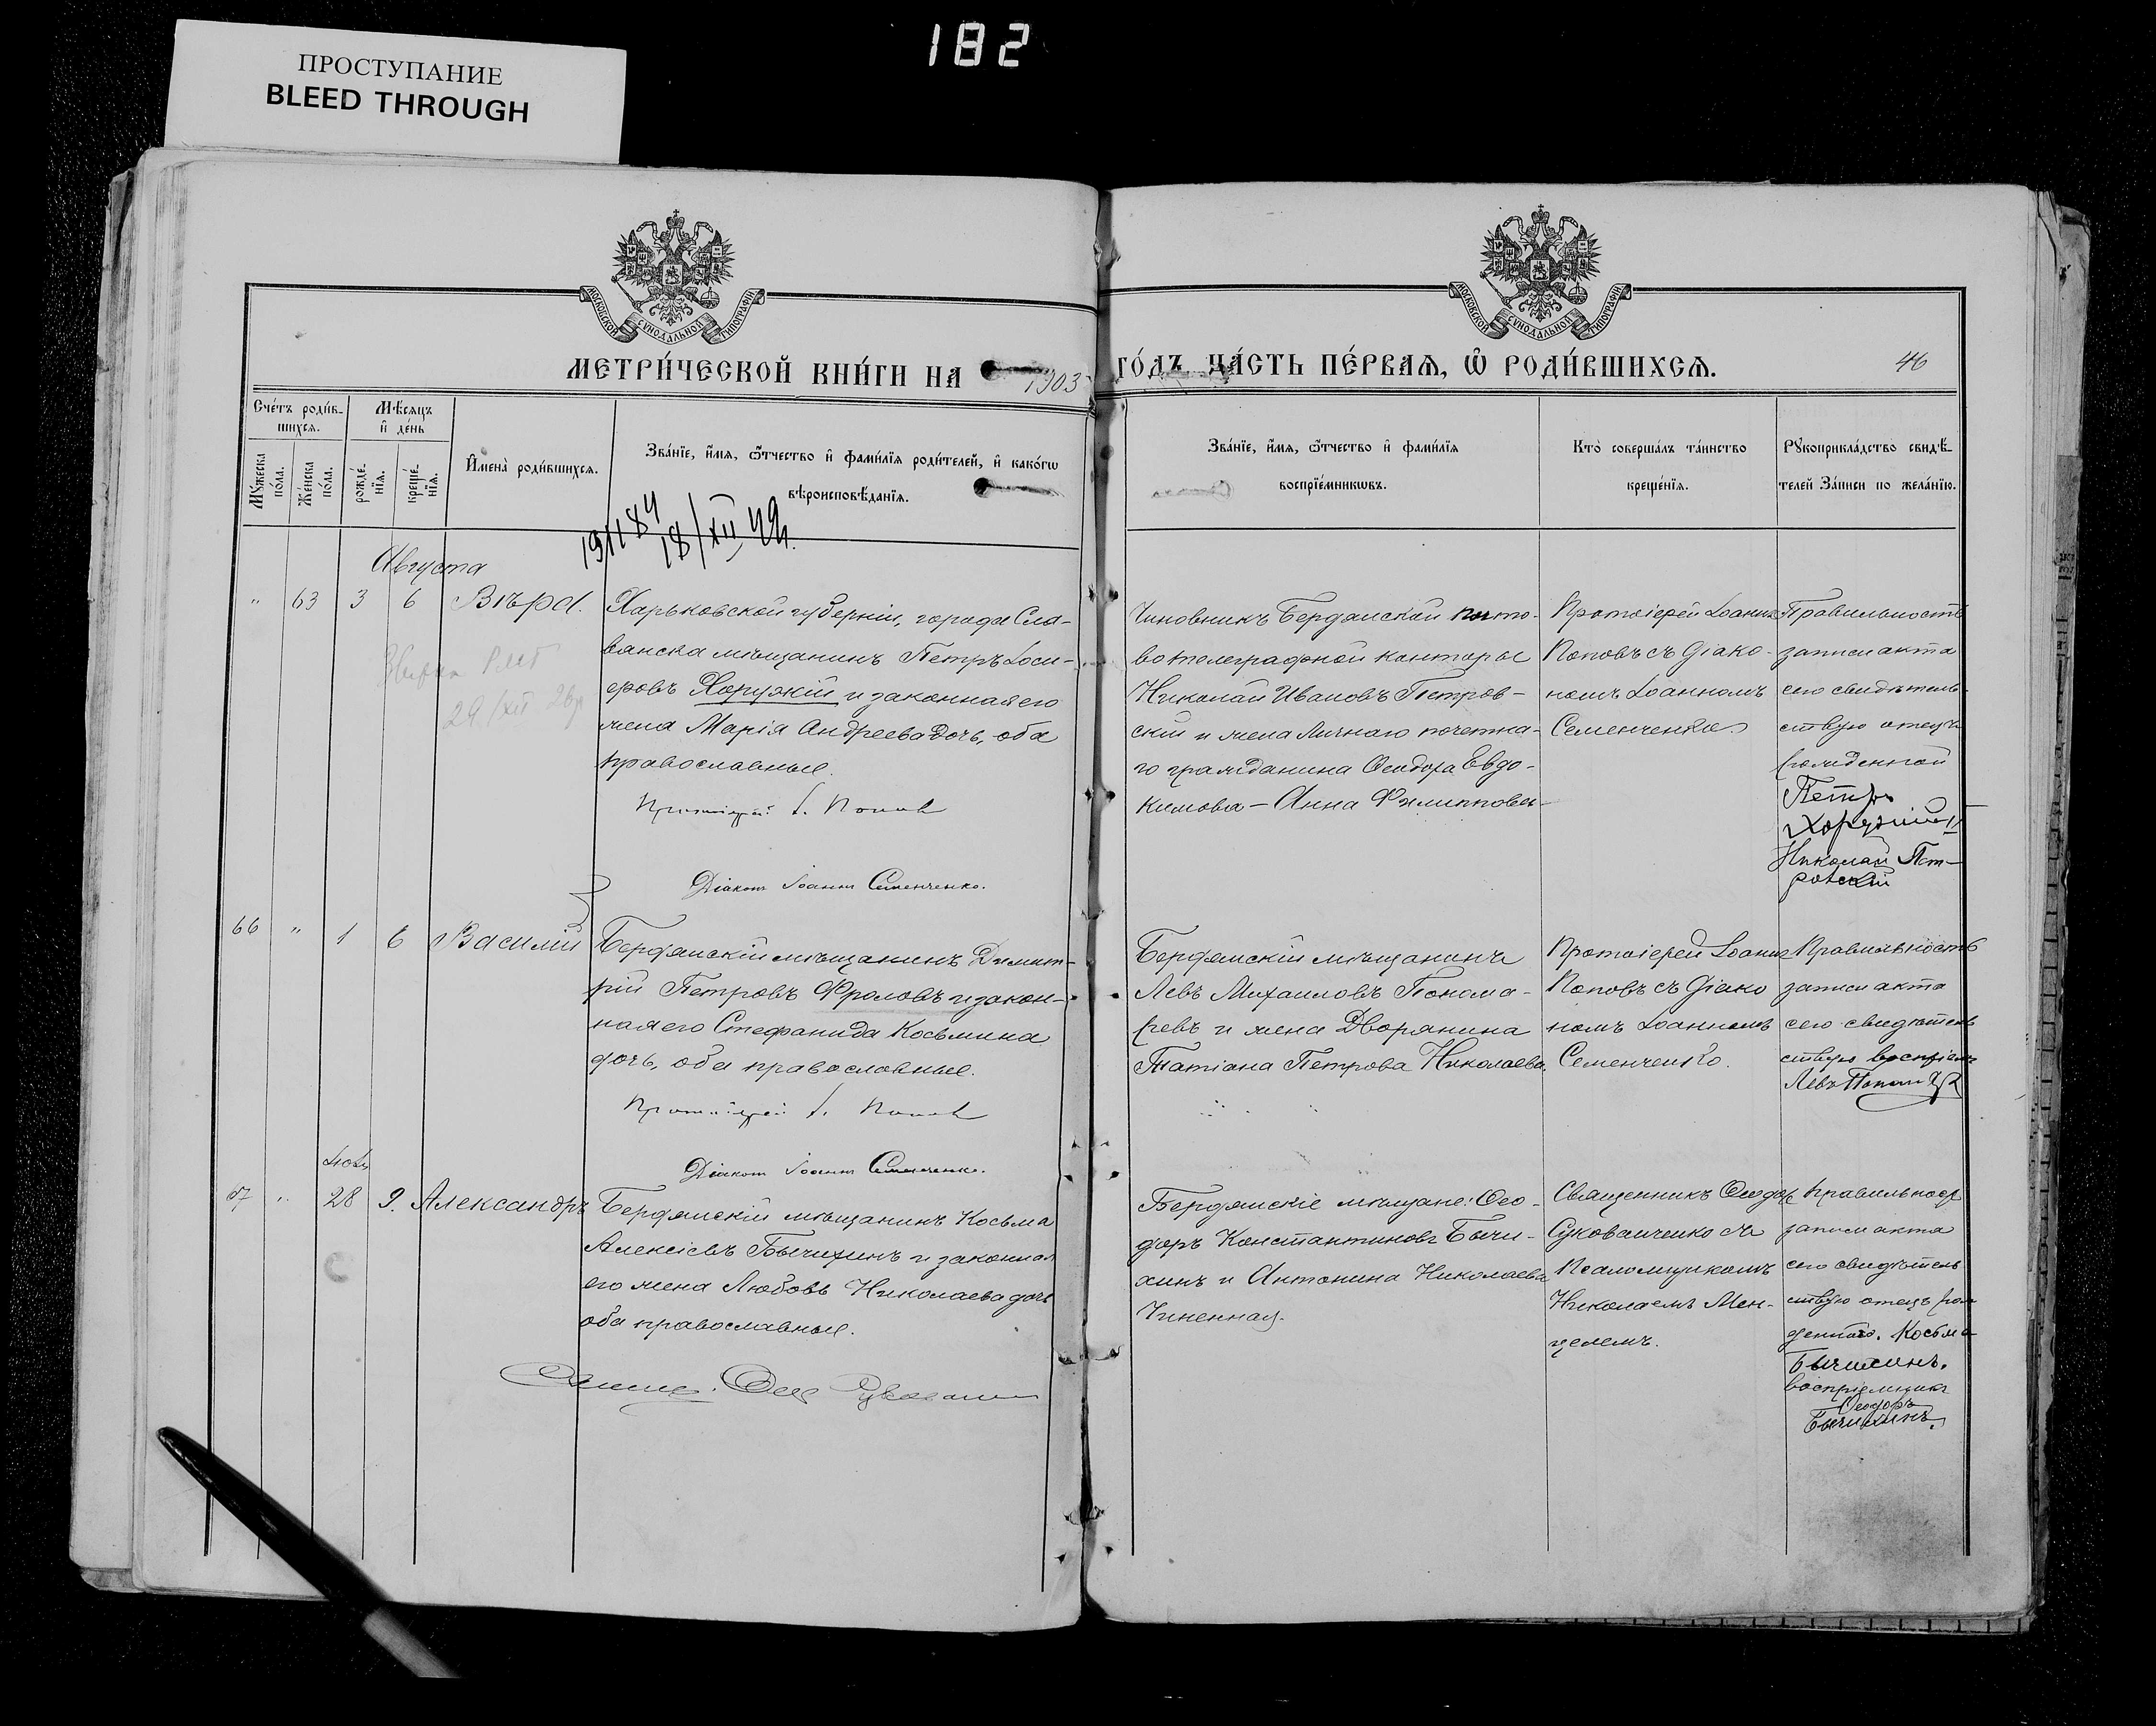 182
ПРОСТУПАНИЕ
BLEED THROUGH
МОСКОВСКОЙ СѴНОДАЛЬНОЙ ТИПОГРАФІИ
МОСКОВСКОЙ СѴНОДАЛЬНОЙ ТИПОГРАФІИ
МЕТРИ́ЧЕСКОЙ КНИ́ГИ НА 1903 ГО́ДЪ ЧА́СТЬ ПЕ́РВАѦ, Ѿ РОДИ́ВШИХСѦ.
46
Сче́тъ роди́в-
шихсѧ.
Мѣ́сѧцъ
и҆ де́нь
Мꙋ́жеска
по́ла.
Же́нска
по́ла.
рожде́-
нїѧ.
креще́-
нїѧ.
И҆мена̀ роди́вшихсѧ.
Зва́нїе, и҆́мѧ, ѻ҆́тчество и҆ фами́лїѧ роди́телей, и҆ како́гѡ
вѣроисповѣ́данїѧ.
Зва́нїе, и҆́мѧ, ѻ҆́тчество и҆ фами́лїѧ
воспрїе́мникѡвъ.
Кто̀ соверша́лъ та́инство
креще́нїѧ.
Рꙋкоприкла́дство свидѣ́-
телей За́писи по жела́нїю.
18/XII 49г.
Августа
" 63 3 6 Вѣра.
Харьковской губерніи, города Сла-
вянска мѣщанинъ Петръ Іоси-
фовъ Хоружій и законная его
жена Марія Андреева дочь, оба
православные.
Протоіерей І. Поповъ
Діаконъ Іоаннъ Семенченко.
Чиновникъ Бердянской почто-
во телеграфной конторы
Николай Ивановъ Петров-
скій и жена Личнаго почетна-
го гражданина Ѳеодора Евдо-
кимова – Анна Филиппова
Протоіерей Іоаннъ
Поповъ съ Діако-
номъ Іоанномъ
Семенченко
Правильность
записи акта
сего свидѣтель-
ствую отецъ
рожденной
Петръ
Хоружій
Николай Пет-
ровскій
66 " 1 6 Василій
Бердянскій мѣщанинъ Димит-
рій Петровъ Фроловъ и закон-
ная его Стефанида Косьмина
дочь, оба православные.
Протоіерей І. Поповъ
Діаконъ Іоаннъ Семенченко.
Бердянскій мѣщанинъ
Левъ Михаиловъ Понома-
ревъ и жена Дворянина
Татіана Петрова Николаева.
Протоіерей Іоаннъ
Поповъ съ Діако
номъ Іоанномъ
Семенченко.
Правильность
записи акта
сего свидѣтель
ствую воспріем.
Левъ
67 " 28 9. Александръ
Бердянскій мѣщанинъ Косьма
Алексіевъ Бычихинъ и законная
его жена Любовь Николаева дочь
оба православные.
Бердянскіе мѣщане: Ѳео-
доръ Константиновъ Бычи-
хинъ и Антонина Николаева
Чиненная.
Священникъ Ѳеодоръ
Суковаченко съ
Псаломщикомъ
Николаемъ Мен-
целемъ.
Правильность
записи акта
сего свидѣтель
ствую отецъ рож
деннаго. Косьма
Бычихинъ.
воспріемникъ
Ѳеодоръ
Бычихинъ.